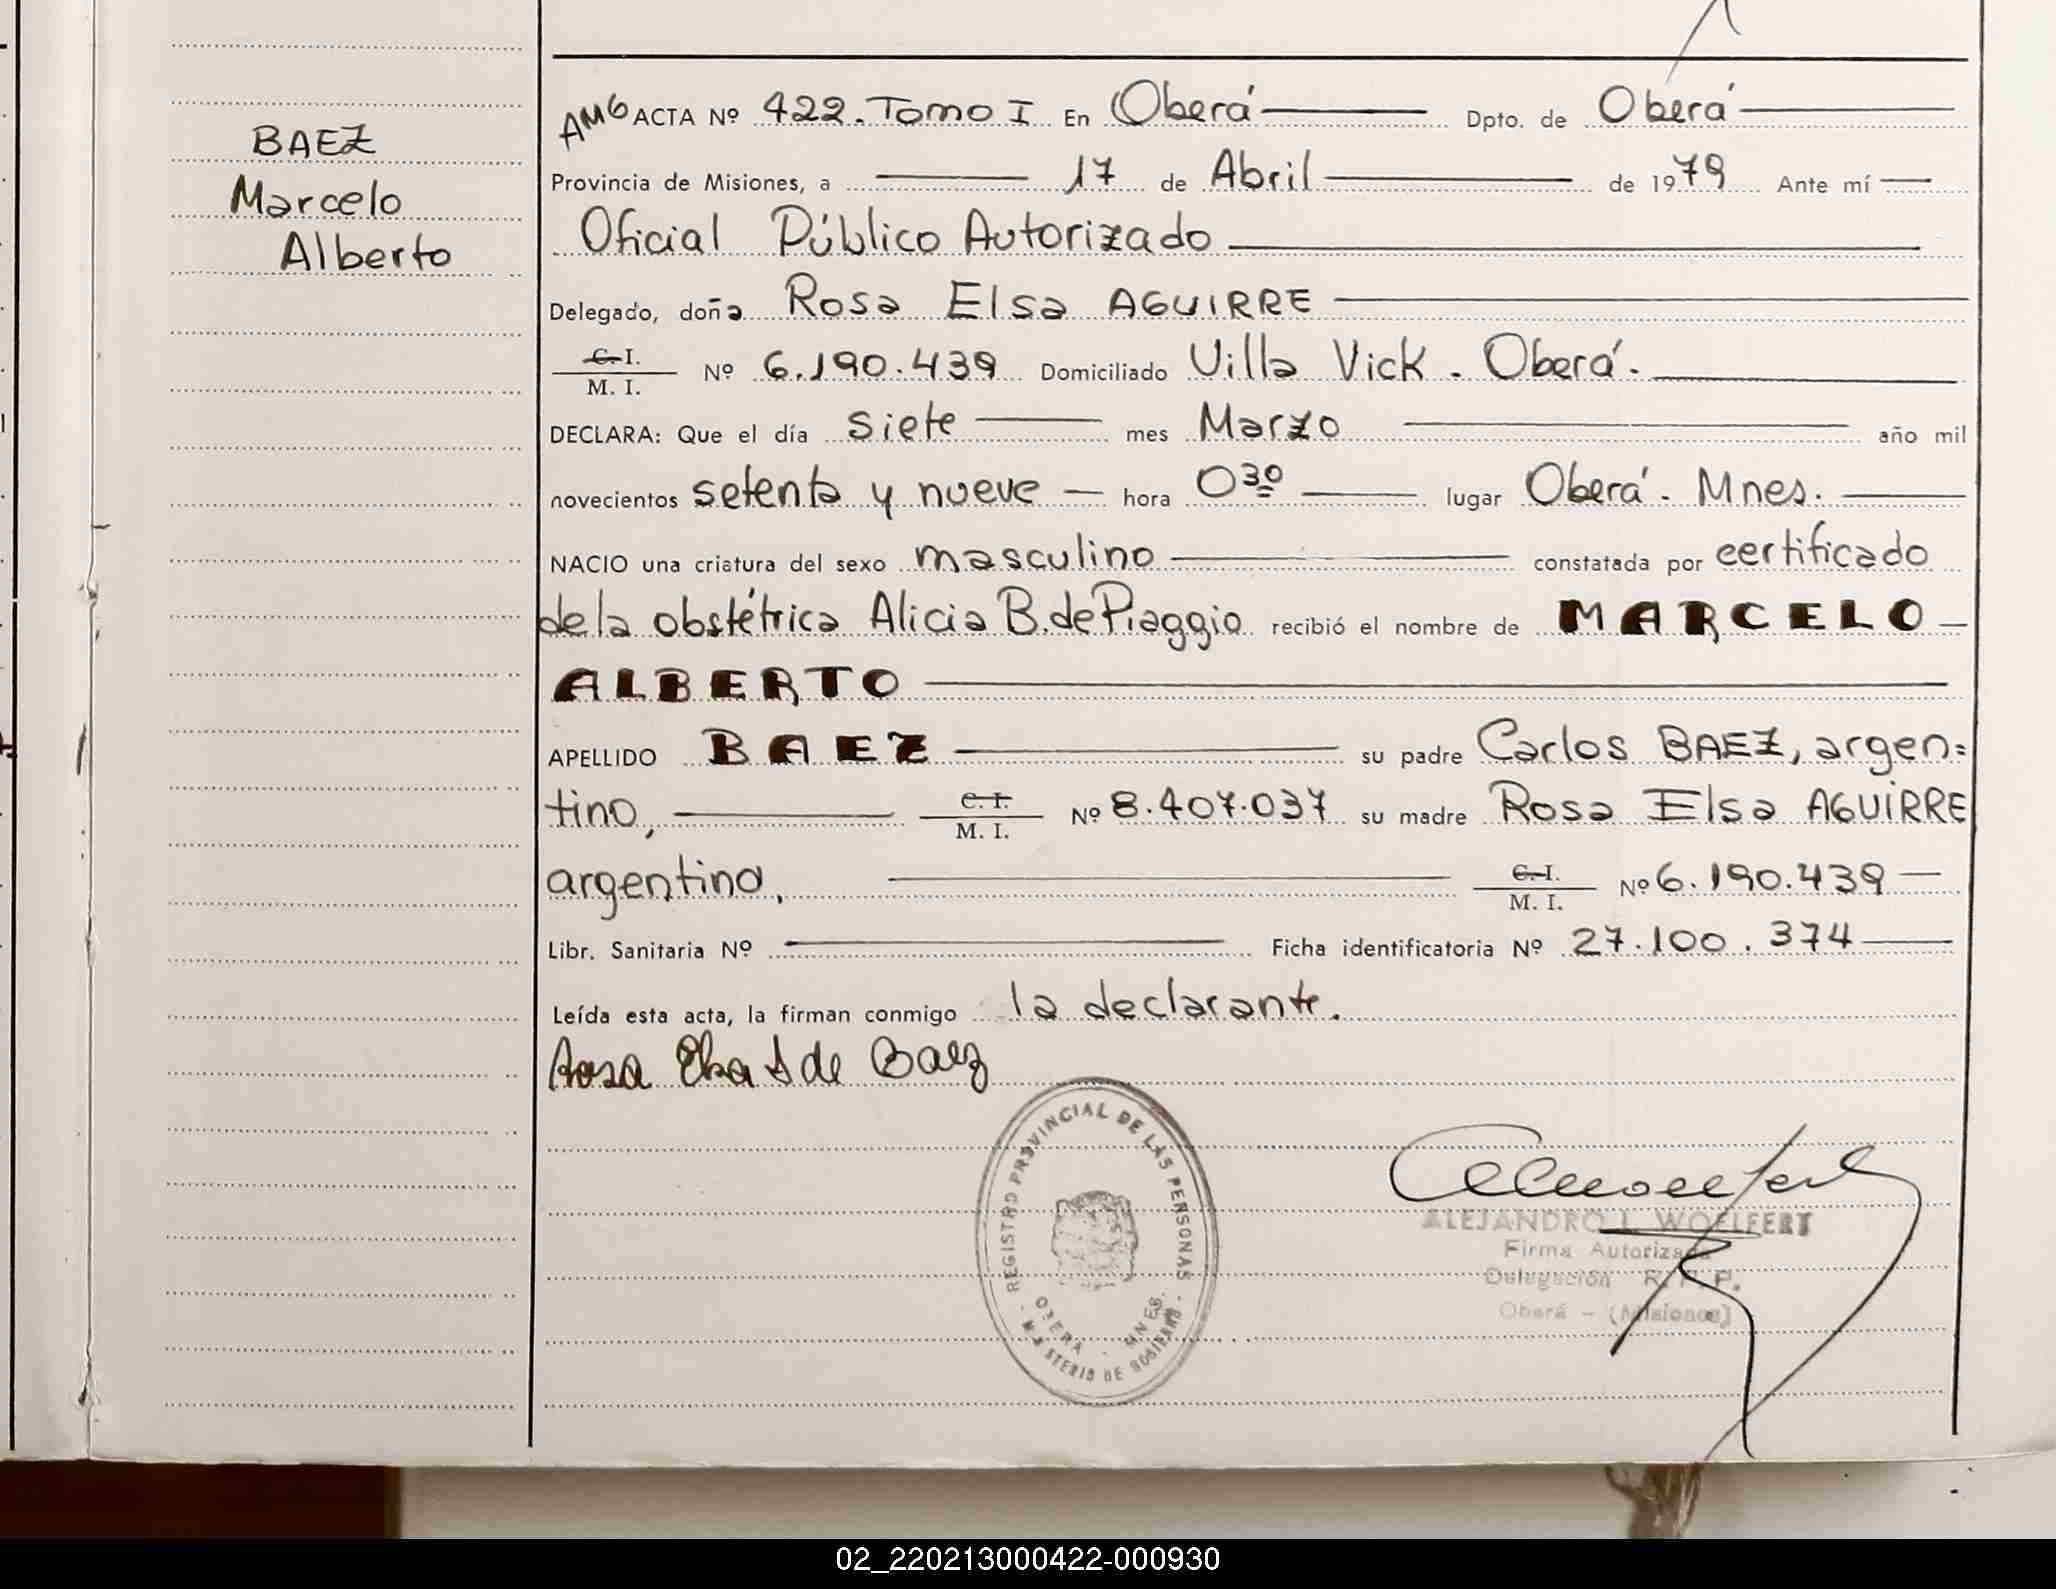 BAEZ
Marcelo
Alberto
AMG ACTA Nº 422. Tomo I En Oberá Dpto. de Oberá
Provincia de Misiones, a 17 de Abril de 1979 Ante mí
Oficial Público Autorizado
Delegado, doña Rosa Elsa AGUIRRE
C. I.
M. I. Nº 6.190.439 Domiciliado Villa Vick. Oberá.
DECLARA: Que el día siete mes Marzo año mil
novecientos setenta y nueve hora 0 30 lugar Oberá. Mnes.
NACIO una criatura del sexo masculino constatada por certificado
de la obstétrica Alicia B. de Piaggio recibió el nombre de MARCELO
ALBERTO
APELLIDO BAEZ su padre Carlos BAEZ, argen=
tino, C. I.
M. I. Nº 8.407.037 su madre Rosa Elsa AGUIRRE
argentina, C. I.
M. I. Nº 6.190.439
Libr. Sanitaria Nº Ficha identificatoria Nº 27.100.374
Leída esta acta, la firman conmigo la declarante.
Rosa Elsa A de Baez
REGISTRO PROVINCIAL DE LAS PERSONAS
OBERA - MNES.
MINISTERIO DE GOBIERNO
ALEJANDRO L. WOELFERT
Firma Autorizada
Delegación R. P. P.
Oberá - (Misiones)
02_220213000422-000930